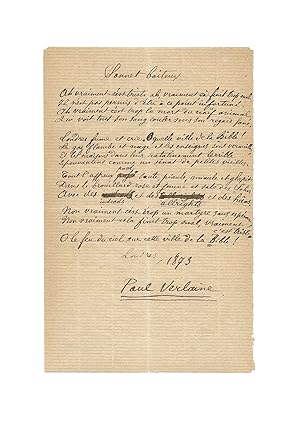 Sonnet boiteux
Ah vraiment c'est triste ah vraiment ça finit trop mal
Il n'est pas permis d'être à ce point infortuné
Ah vraiment c'est trop la mort du naïf animal
Qui voit tout son sang couler sous son regard fané
Londres fume et crie. O quelle ville de la Bible!
Le gaz flambe et nage et les enseignes sont vermeilles
Et les maisons dans leur ratatinement terrible
Épouvantent comme un sénat de petites vieilles.
Tout l'affreux passé saute, piaule, miaule et glapit
Dans le brouillard rose et jaune et sale des Sohos
Avec des indeeds et des allrights et des
Non vraiment c'est trop un martyre sans espérance
Non vraiment cela finit trop mal, vraiment c'est triste
O le feu du ciel sur cette ville de la Bible!
Londres, 1873
Paul Verlaine